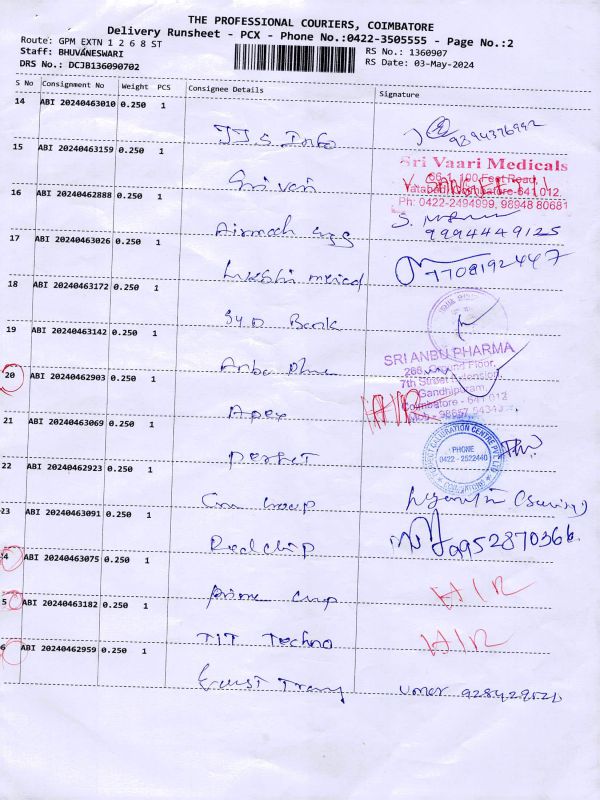 THE PROFESSIONAL COURIERS, COIMBATORE
Delivery Runsheet - PCX - Phone No.:0422-3505555 - Page No.:2
Route: GPM EXTN 1 2 6 8 ST
Staff: BHUVANESWARI
DRS No.: DCJB136090702
RS No.: 1360907
RS Date: 03-May-2024
S No Consignment No Weight PCS Consignee Details Signature
14 ABI 20240463010 0.250 1
9894376992
15 ABI 20240463159 0.250 1
Sri Vaari
Sri Vaari Medicals
100 Feet Road,
Coimbatore-641 012.
Ph: 0422-2494999, 98948 80681
16 ABI 20240462888 0.250 1
Airmech engg
S.
9994449125
17 ABI 20240463026 0.250 1
medical
7708192447
18 ABI 20240463172 0.250 1
Bank
19 ABI 20240463142 0.250 1
Anbu
SRI ANBU PHARMA
Ground Floor,
7th Street Extension,
Gandhipuram,
Coimbatore - 641 012
20 ABI 20240462903 0.250 1
Apex
H/R
21 ABI 20240463069 0.250 1
Perfect
PERFECT CALIBRATION CENTRE PVT LTD
PHONE
0422 - 2522440
COIMBATORE
22 ABI 20240462923 0.250 1
Group
23 ABI 20240463091 0.250 1
Redchip
9952870366
4 ABI 20240463075 0.250 1
Prime
H/R
5 ABI 20240463182 0.250 1
TIT Techno
H/R
6 ABI 20240462959 0.250 1
Umar